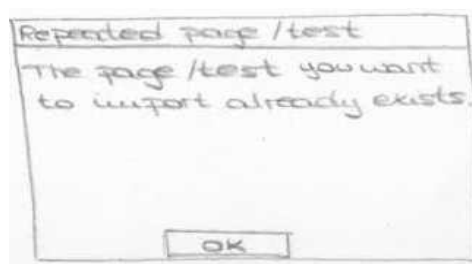 Repeated page /test
The page /test you want
to import already exists
OK